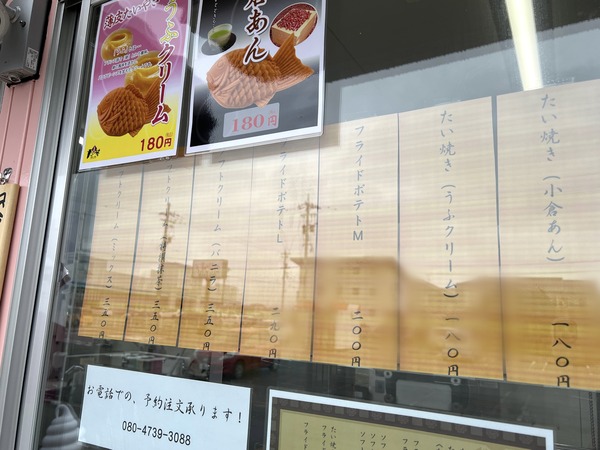 薄皮たいやき
うふクリーム
180円
倉あん
180円
たい焼き（小倉あん） 一八〇円
たい焼き（うふクリーム） 一八〇円
フライドポテトM 二〇〇円
フライドポテトL 二九〇円
フトクリーム（バニラ） 三五〇円
三五〇円
フトクリーム（ミックス） 三五〇円
お電話での、予約注文承ります！
080-4739-3088